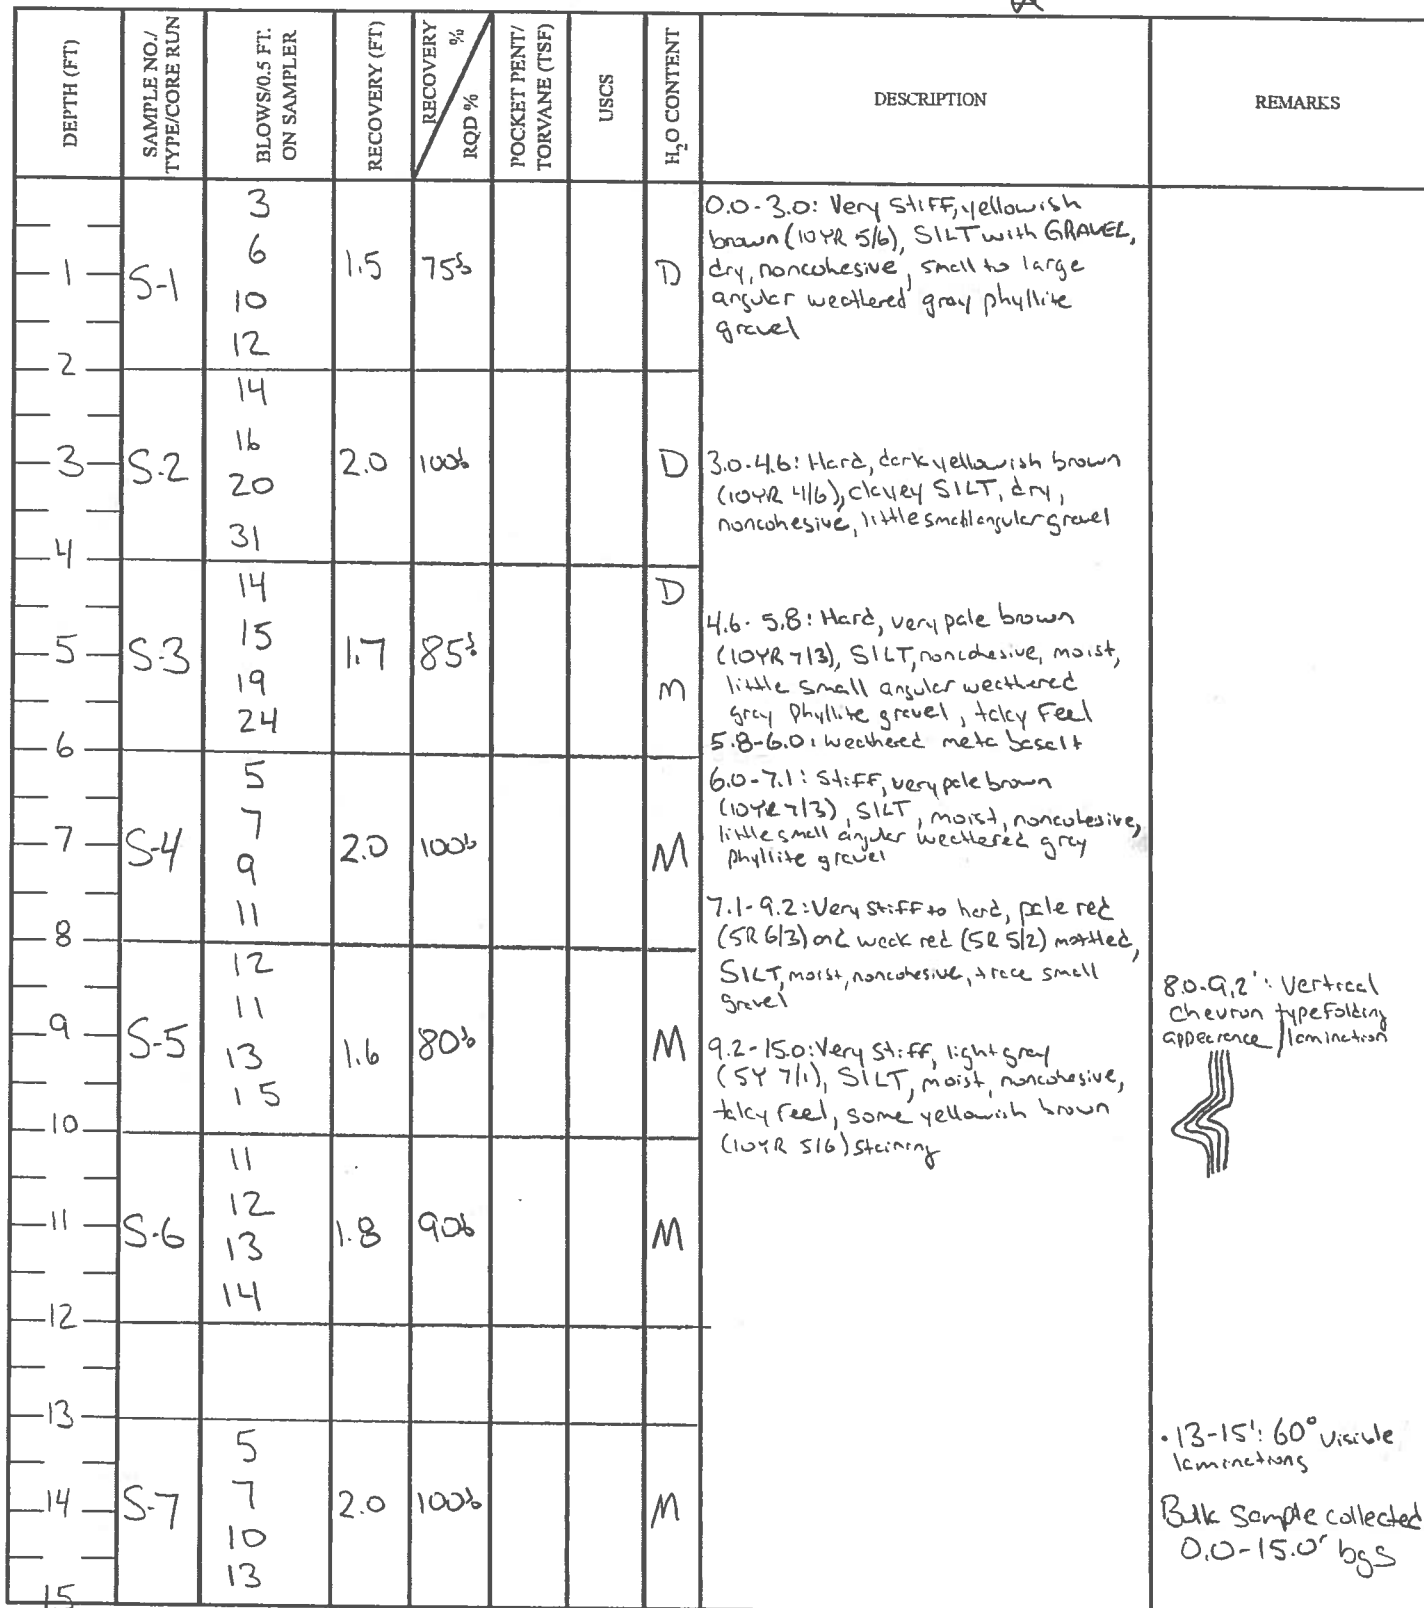 DEPTH (FT)
SAMPLE NO./
TYPE/CORE RUN
BLOWS/0.5 FT.
ON SAMPLER
RECOVERY (FT)
RECOVERY %
RQD %
POCKET PENT/
TORVANE (TSF)
USCS
H₂O CONTENT
DESCRIPTION
REMARKS
1
2
3
4
5
6
7
8
9
10
11
12
13
14
15
S-1
3
6
10
12
1.5
75%
D
0.0-3.0: Very Stiff, yellowish
brown (10YR 5/6), SILT with GRAVEL,
dry, noncohesive, small to large
angular weathered gray phyllite
gravel
S-2
14
16
20
31
2.0
100%
D
3.0-4.6: Hard, dark yellowish brown
(10YR 4/6), clayey SILT, dry,
noncohesive, little small angular gravel
S-3
14
15
19
24
1.7
85%
D
M
4.6-5.8: Hard, very pale brown
(10YR 7/3), SILT, noncohesive, moist,
little small angular weathered
gray Phyllite gravel, talcy Feel
5.8-6.0: weathered meta basalt
S-4
5
7
9
11
2.0
100%
M
6.0-7.1: Stiff, very pale brown
(10YR 7/3), SILT, moist, noncohesive,
little small angular weathered gray
phyllite gravel
7.1-9.2: Very Stiff to hard, pale red
(5R 6/3) and weak red (5R 5/2) mottled,
SILT, moist, noncohesive, trace small
gravel
S-5
12
11
13
15
1.6
80%
M
8.0-9.2': Vertical
Chevron type Folding
appearance / lamination
9.2-15.0: Very Stiff, light gray
(5Y 7/1), SILT, moist, noncohesive,
talcy Feel, some yellowish brown
(10YR 5/6) Staining
S-6
11
12
13
14
1.8
90%
M
S-7
5
7
10
13
2.0
100%
M
• 13-15': 60° visible
laminations
Bulk Sample collected
0.0-15.0' bgs